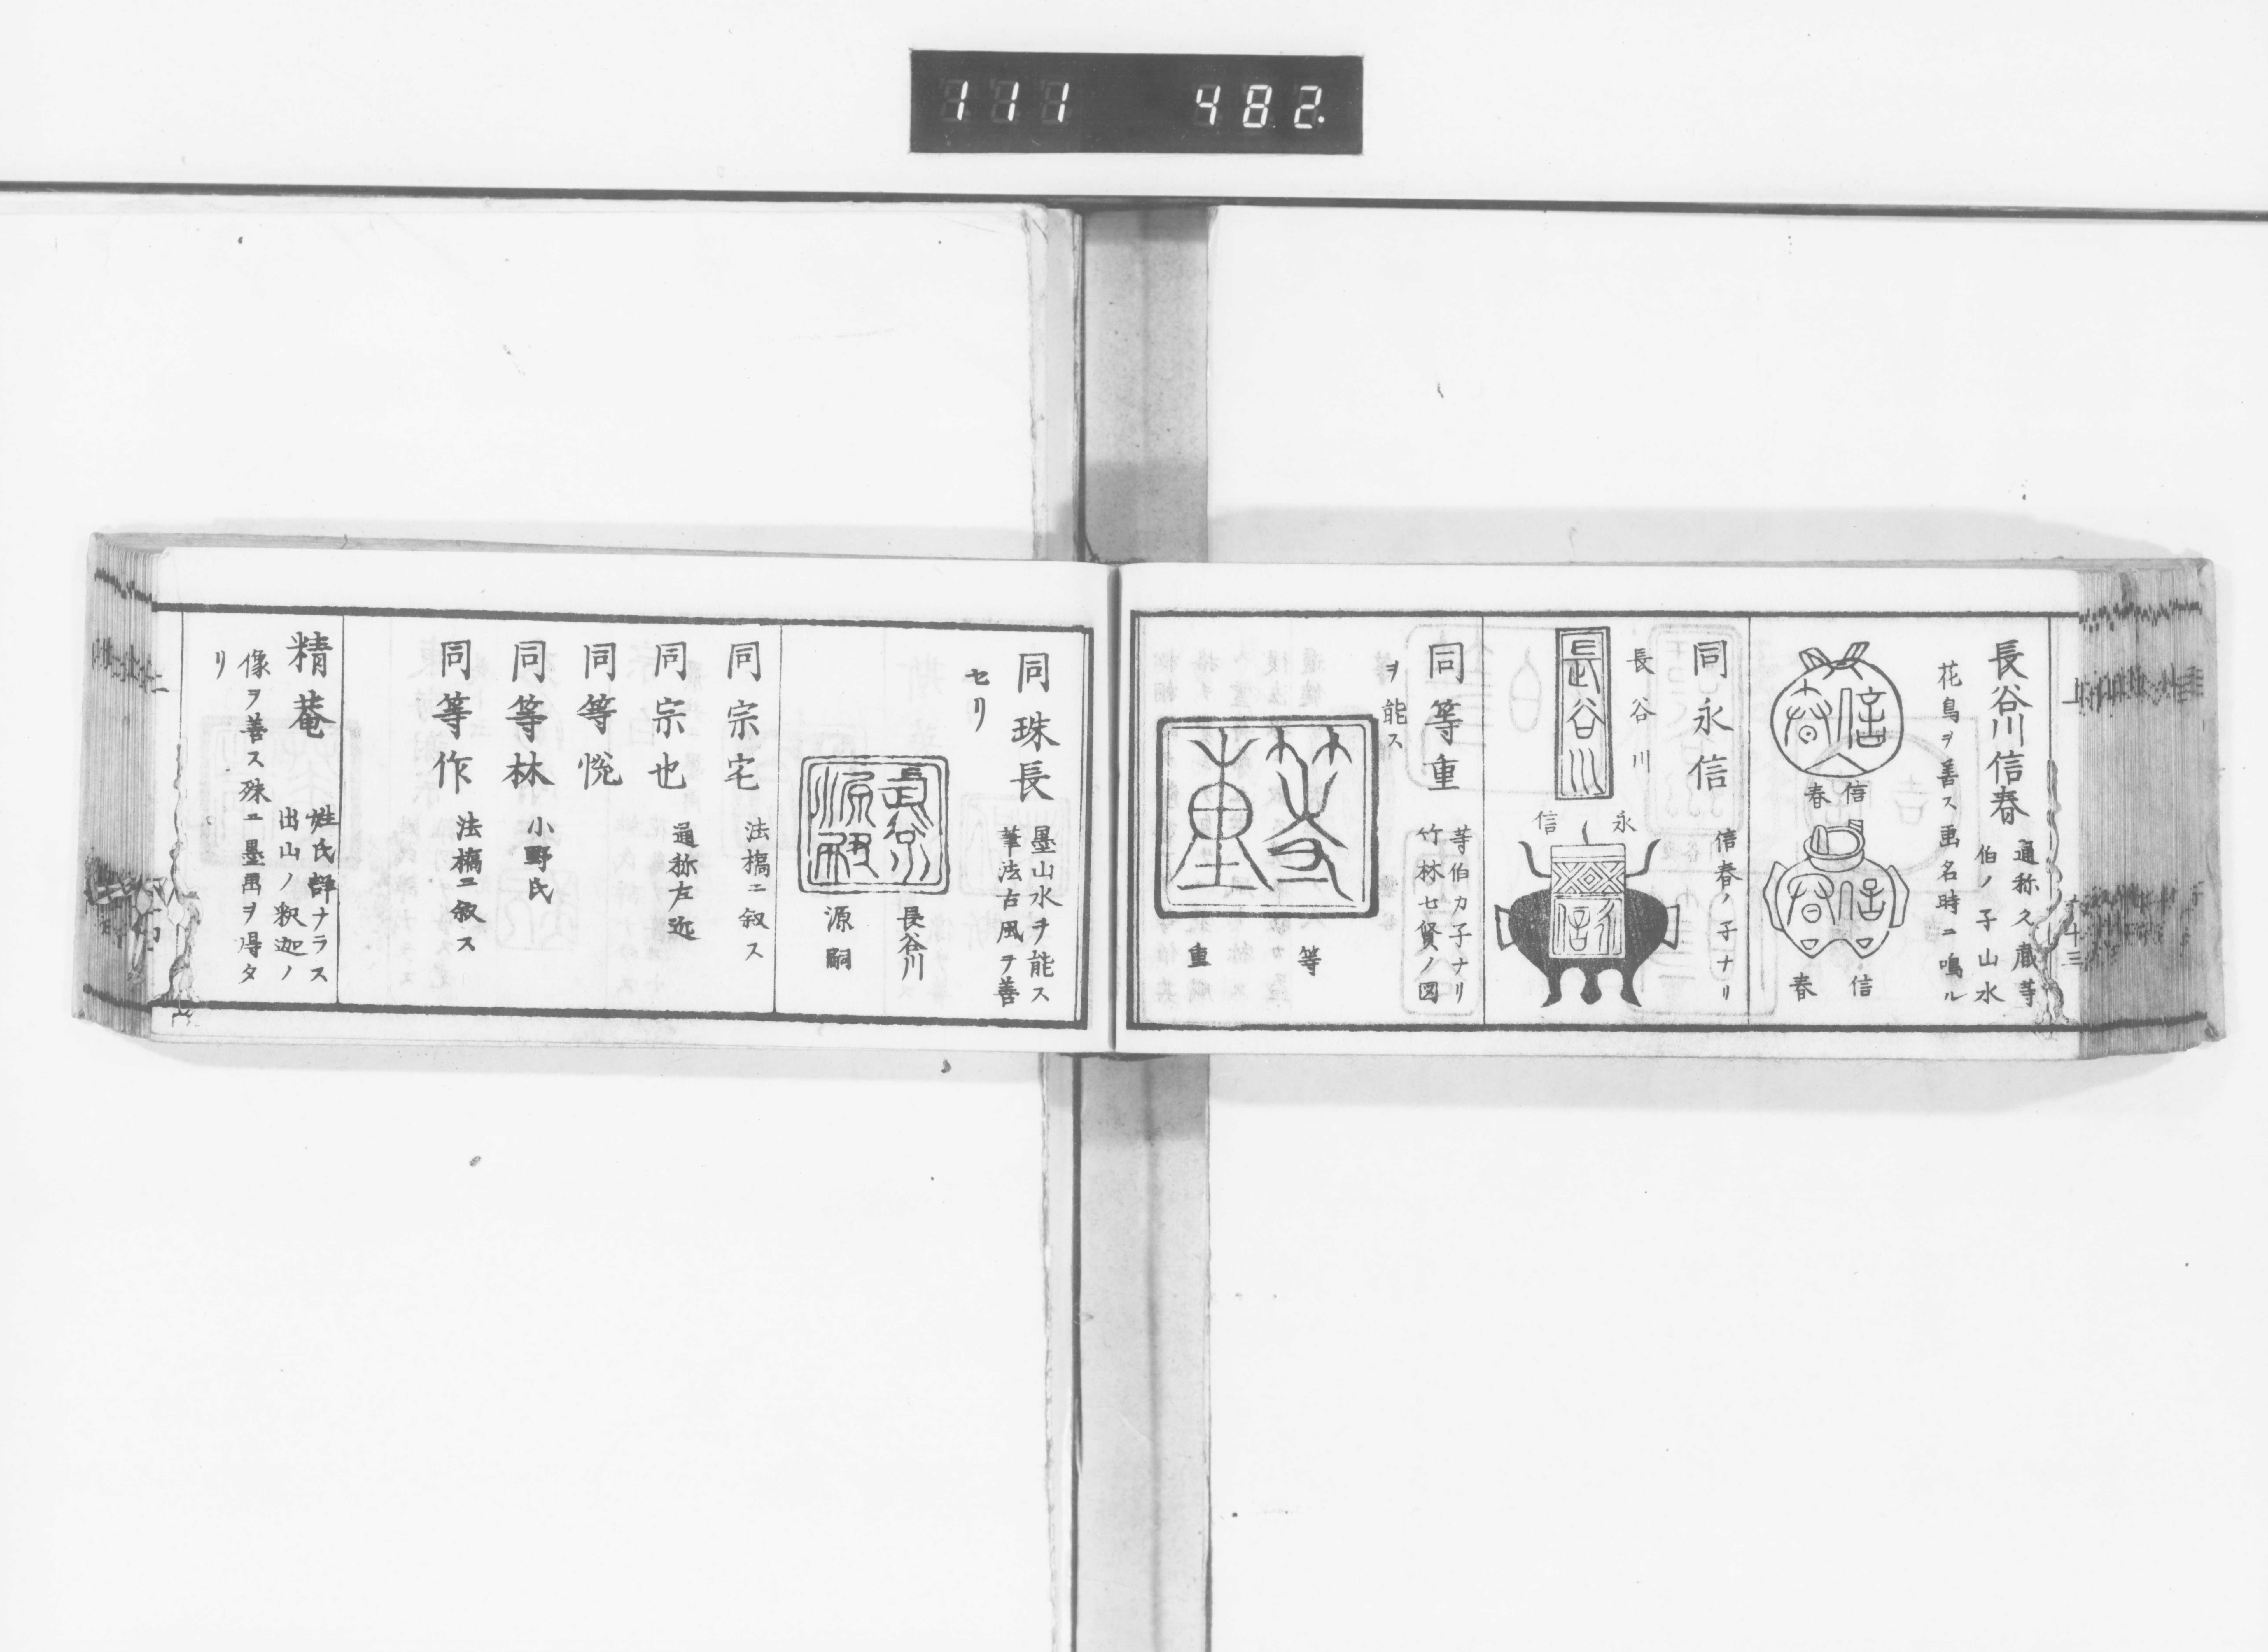 111 482.
長谷川信春
通称久蔵等
伯ノ子山水
花鳥ヲ善ス画名時ニ鳴ル
信春
信春
信春
信春
同永信
信春ノ子ナリ
長谷川
長谷川
永信
永信
同等重
等伯カ子ナリ
竹林七賢ノ図
ヲ能ス
等重
等重
同珠長
墨山水ヲ能ス
筆法古風ヲ善
セリ
長谷川
源嗣
長谷川
源嗣
同宗宅
法橋ニ叙ス
同宗也
通称左近
同等悦
同等林
小野氏
同等作
法橋ニ叙ス
精菴
姓氏詳ナラス
出山ノ釈迦ノ
像ヲ善ス殊ニ墨画ヲ得タ
リ